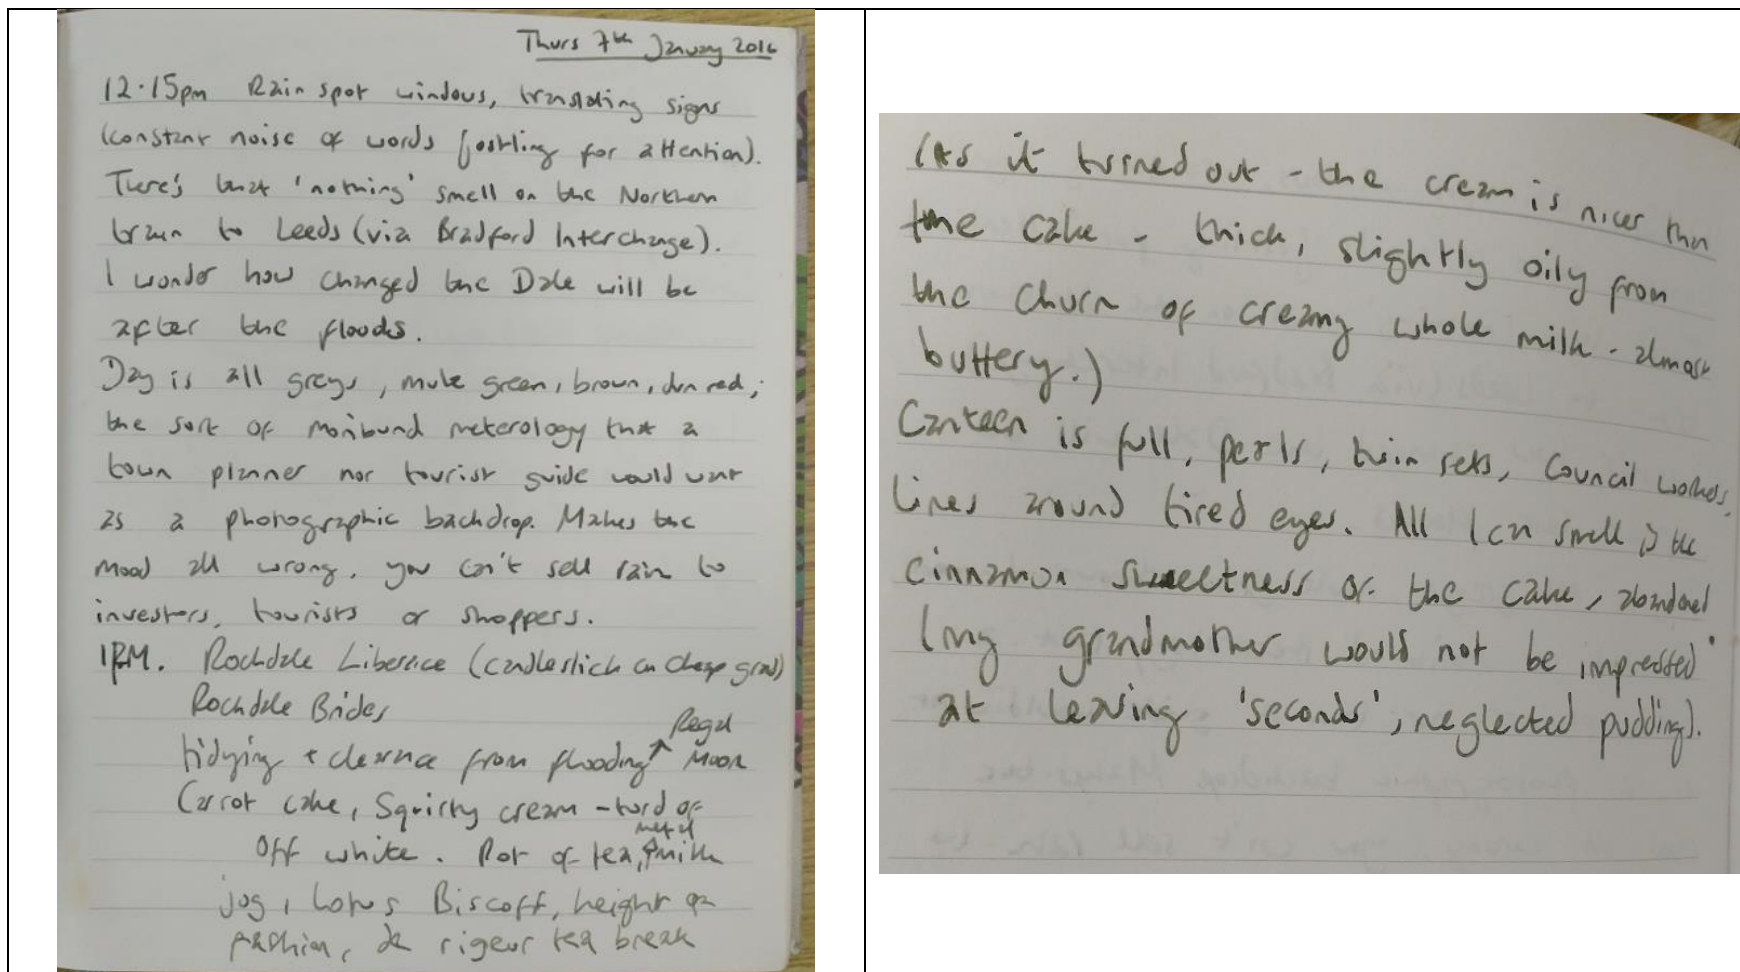 Thurs 7th January 2016
12.15pm Rain spot windows, translating signs
(constant noise of words jostling for attention).
There's that 'nothing' smell on the Northern
train to Leeds (via Bradford Interchange).
I wonder how changed the Dale will be
after the floods.
Day is all greys, mute green, brown, dun red;
the sort of moribund meterology that a
town planner nor tourist guide would want
as a photographic backdrop. Makes the
mood all wrong, you can't sell rain to
investors, tourists or shoppers.
1PM. Rochdale Liberace (candlestick on cheap)
Rochdale Brides
Regal
tidying + clearance from flooding ↑ Moon
Carrot cake, Squirty cream - turd of
metal
off white. Pot of tea, ↑ milk
jog, Lotus Biscoff, height of
fashion, de rigeur tea break
(As it turned out - the cream is nicer than
the cake - thick, slightly oily from
the churn of creamy whole milk - almost
buttery.)
Canteen is full, perls, twin sets, Council workers,
lines around tired eyes. All I can smell is the
cinnamon sweetness of the cake, abandoned
(my grandmother would not be impressed
at leaving 'seconds', neglected pudding).